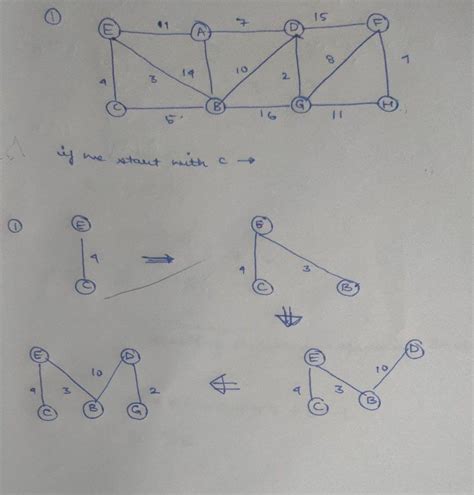 ①
11 7 15
E A D F
4 3 14 10 2 8 9
C B G H
5 16 11
if we start with C →
① E
4
C
⇒
E
4 3
C B
⇓
E D
4 3 10
C B
⇐
E D
4 3 10 2
C B G